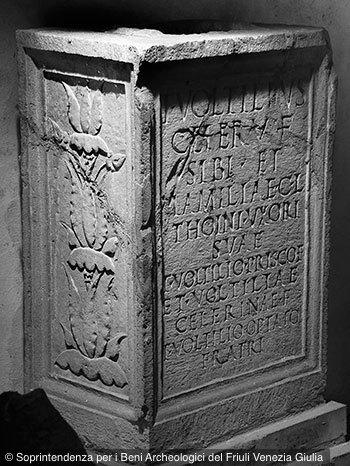 VOLTILIVS
CELER V F
SIBI ET
MAMILIAE C L
THOINI VXORI
SVAE
VOLTILIO PRISCO F
ET VOLTILIAE
CELERINAE F
VOLTILIO OPTATO
FRATRI
© Soprintendenza per i Beni Archeologici del Friuli Venezia Giulia